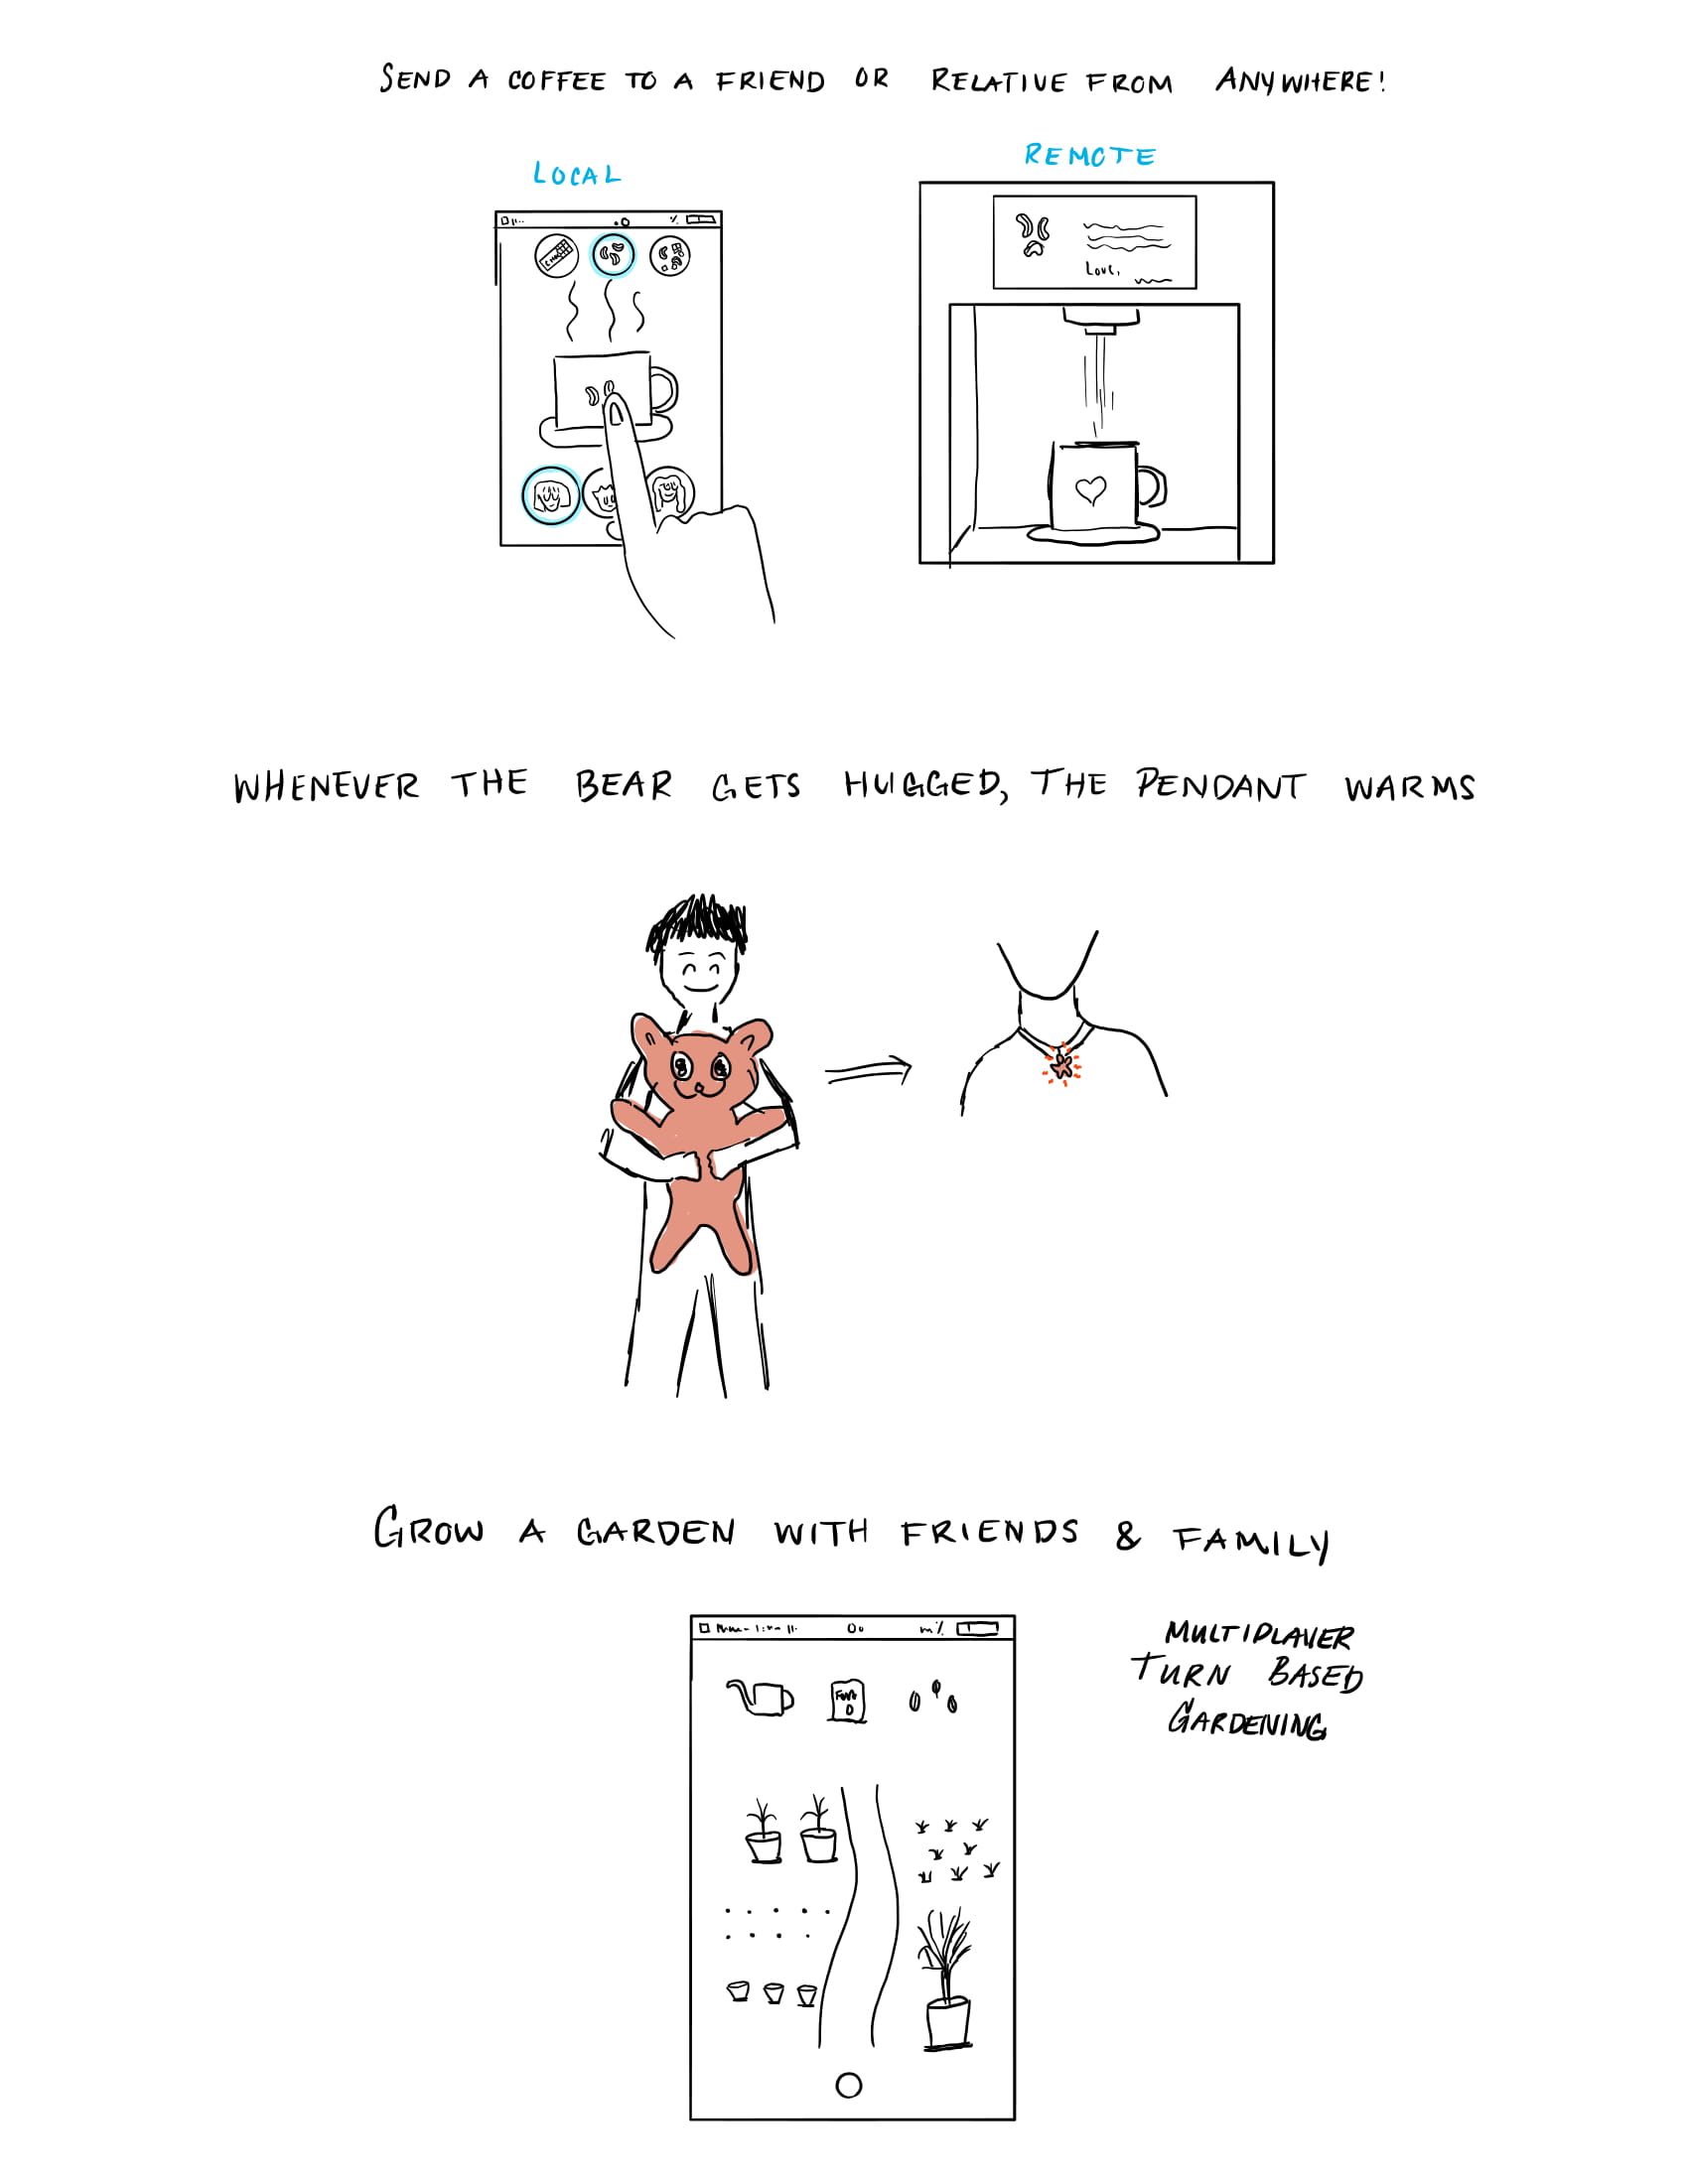 SEND A COFFEE TO A FRIEND OR RELATIVE FROM ANYWHERE!
LOCAL
REMOTE
Love,
WHENEVER THE BEAR GETS HUGGED, THE PENDANT WARMS
GROW A GARDEN WITH FRIENDS & FAMILY
MULTIPLAYER
TURN BASED
GARDENING